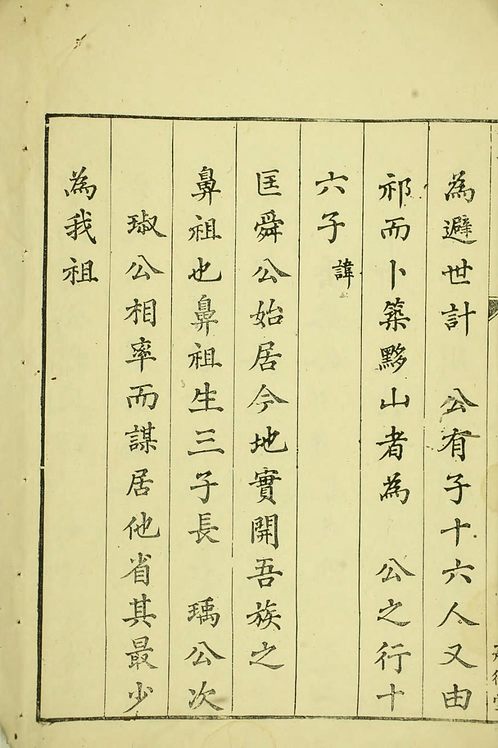 為避世計　公有子十六人又由
祁而卜築黟山者為　公之行十
六子諱
匡舜公始居今地實開吾族之
鼻祖也鼻祖生三子長　瑀公次
琡公相率而謀居他省其最少
為我祖